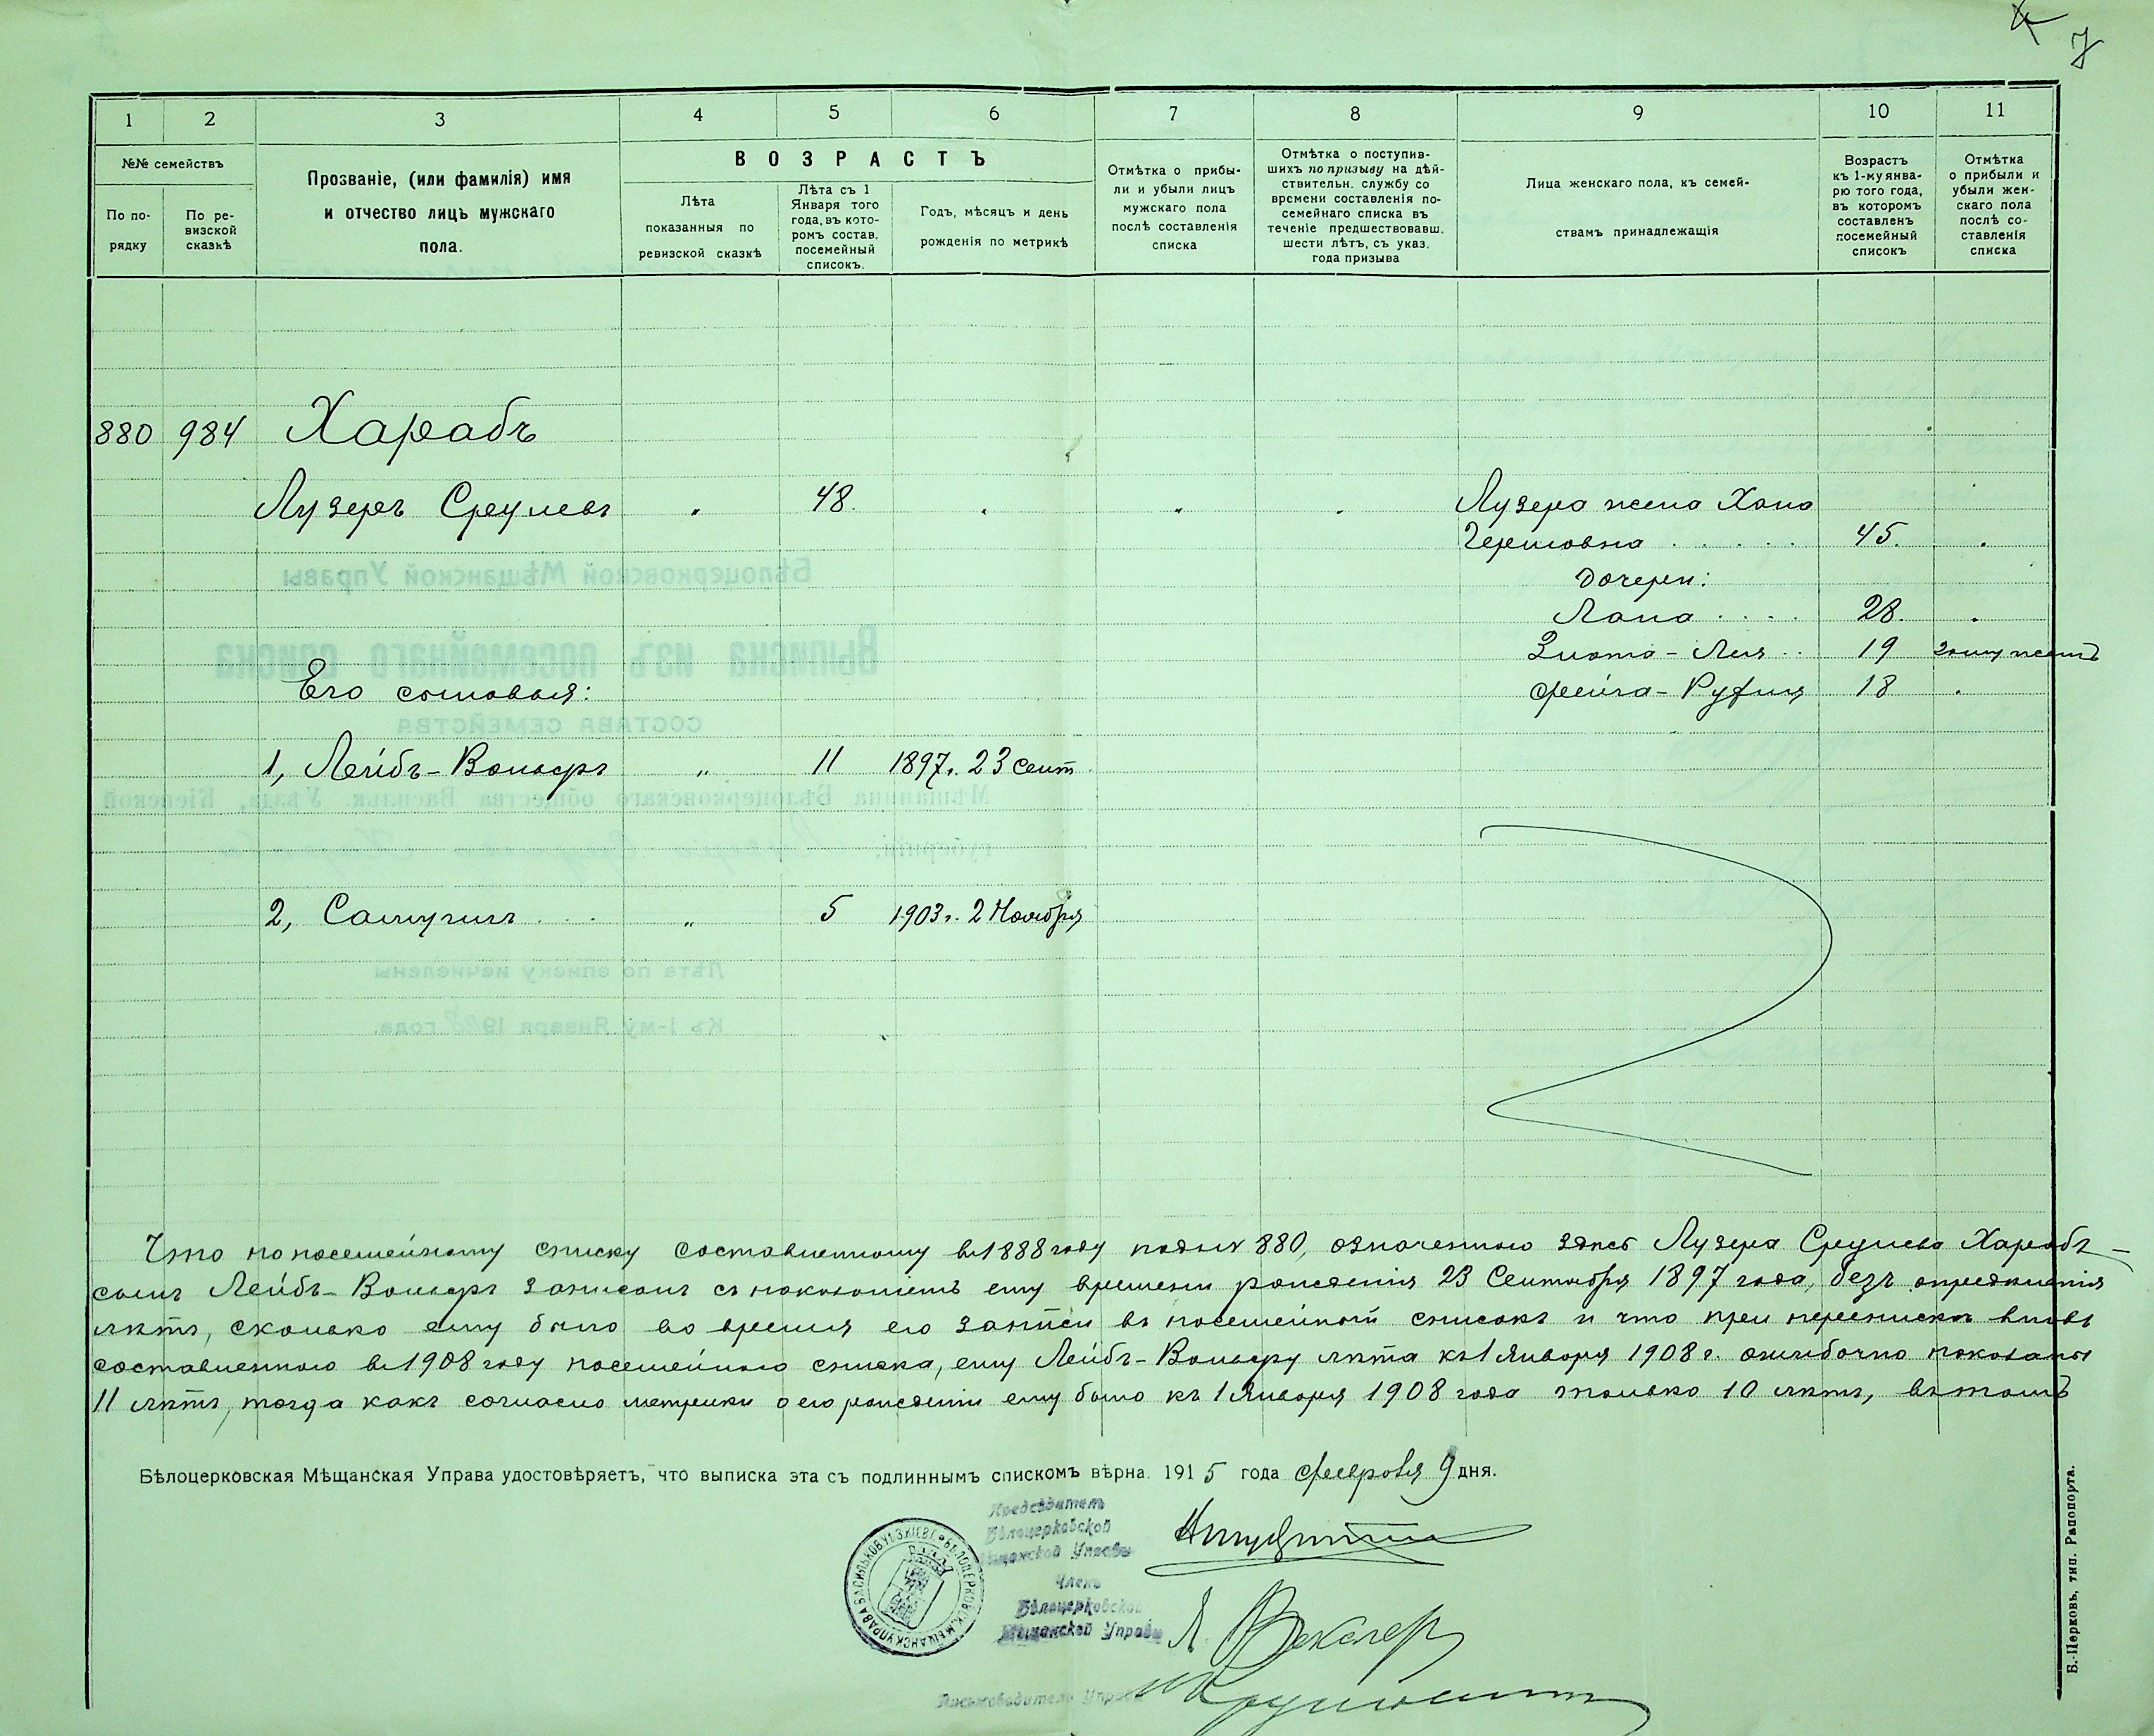 7
1 2 3 4 5 6 7 8 9 10 11
№№ семействъ
По по-
рядку
По ре-
визской
сказкѣ
Прозваніе, (или фамилія) имя
и отчество лицъ мужскаго
пола.
ВОЗРАСТЪ
Лѣта
показанныя по
ревизской сказкѣ
Лѣта съ 1
Января того
года, въ кото-
ромъ состав.
посемейный
списокъ.
Годъ, мѣсяцъ и день
рожденія по метрикѣ
Отмѣтка о прибы-
ли и убыли лицъ
мужскаго пола
послѣ составленія
списка
Отмѣтка о поступив-
шихъ по призыву на дѣй-
ствительн. службу со
времени составленія по-
семейнаго списка въ
теченіе предшествовавш.
шести лѣтъ, съ указ.
года призыва
Лица женскаго пола, къ семей-
ствамъ принадлежащія
Возрастъ
къ 1-му янва-
рю того года,
въ которомъ
составленъ
посемейный
списокъ
Отмѣтка
о прибыли и
убыли жен-
скаго пола
послѣ со-
ставленія
списка
880 984 Харабъ
Лузеръ Срулевъ " 48. " " " Лузера жена Хана
Гершовна 45. "
дочери:
28. "
Злота-Лея 19 замужемъ
Его сыновья: Фейга-Рухля 18 "
1, Лейбъ-Вольфъ " 11 1897г. 23 сент.
2, Самуилъ " 5 1903г. 2 Ноября
Что по посемейному списку составленному въ 1888 году подъ № 880, означеннаго здѣсь Лузера Срулева Харабъ—
сынъ Лейбъ-Вольфъ записанъ съ показаніемъ ему времени рожденія 23 Сентября 1897 года, безъ опредѣленія
лѣтъ, сколько ему было во время его записи въ посемейный списокъ и что при перепискѣ вновь
составленнаго въ 1908 году посемейнаго списка, ему Лейбъ-Вольфу лѣта къ 1 Января 1908 г. ошибочно показаны
11 лѣтъ, тогда какъ согласно метрики о его рожденіи ему было къ 1 Января 1908 года только 10 лѣтъ, въ томъ
Бѣлоцерковская Мѣщанская Управа удостовѣряетъ, что выписка эта съ подлиннымъ спискомъ вѣрна. 1915 года Февраля 9 дня.
Предсѣдатель
Бѣлоцерковской
Мѣщанской Управы
Членъ
Бѣлоцерковской
Мѣщанской Управы
Л. Векслеръ
Письмоводитель Управы
Б.-Церковь, тип. Рапопорта.